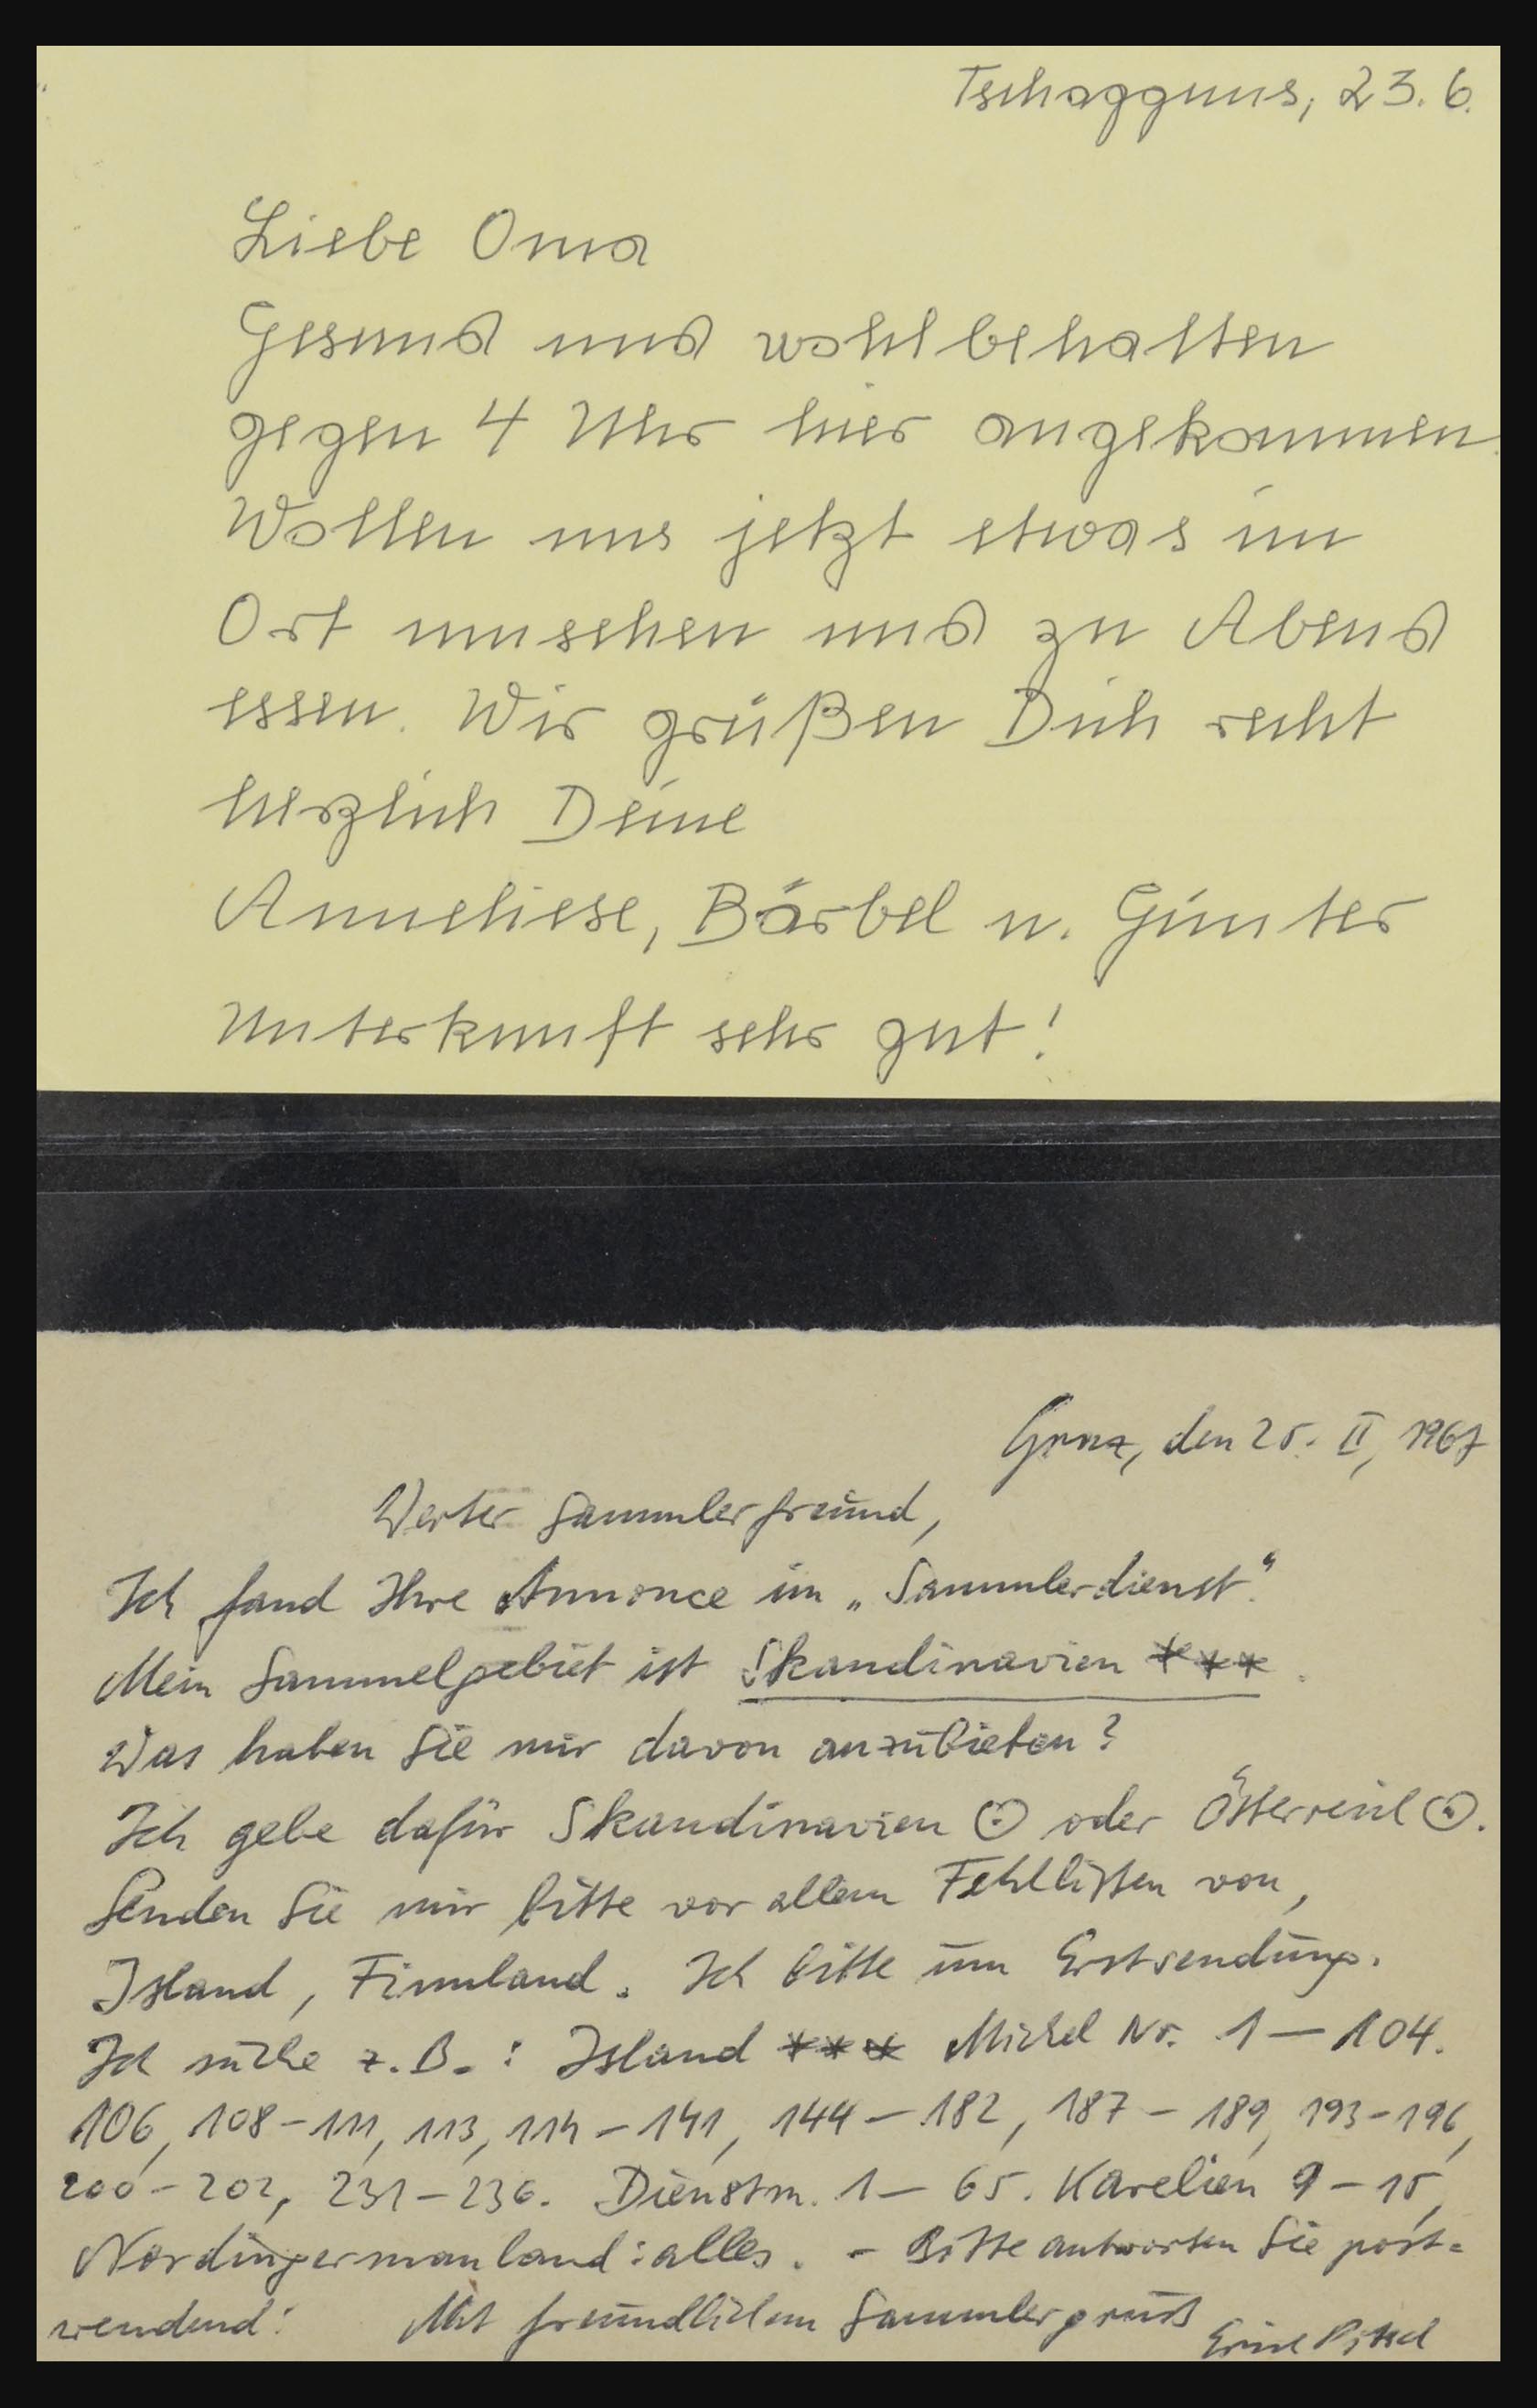 Tschagguns, 23. 6.
Liebe Oma
Gesund und wohlbehalten
gegen 4 Uhr hier angekommen.
Wollen uns jetzt etwas im
Ort umsehen und zu Abend
essen. Wir grüßen Dich recht
herzlich Deine
Anneliese, Bärbel u. Günter
Unterkunft sehr gut!
Graz, den 25. II, 1967
Werter Sammlerfreund,
Ich fand Ihre Annonce im „Sammlerdienst“.
Mein Sammelgebiet ist Skandinavien ***.
Was haben Sie mir davon anzubieten?
Ich gebe dafür Skandinavien ⊙ oder Österreich ⊙.
Senden Sie mir bitte vor allem Fehllisten von,
Island, Finnland. Ich bitte um Erstsendung.
Ich suche z.B.: Island *** Michel Nr. 1 — 104.
106, 108 – 111, 113, 114 – 141, 144 – 182, 187 – 189, 193 – 196,
200 – 202, 231 – 236. Dienstm. 1 — 65. Karelien 9 – 15,
Nordingermanland: alles. – Bitte antworten Sie post=
wendend! Mit freundlichem Sammlergruß